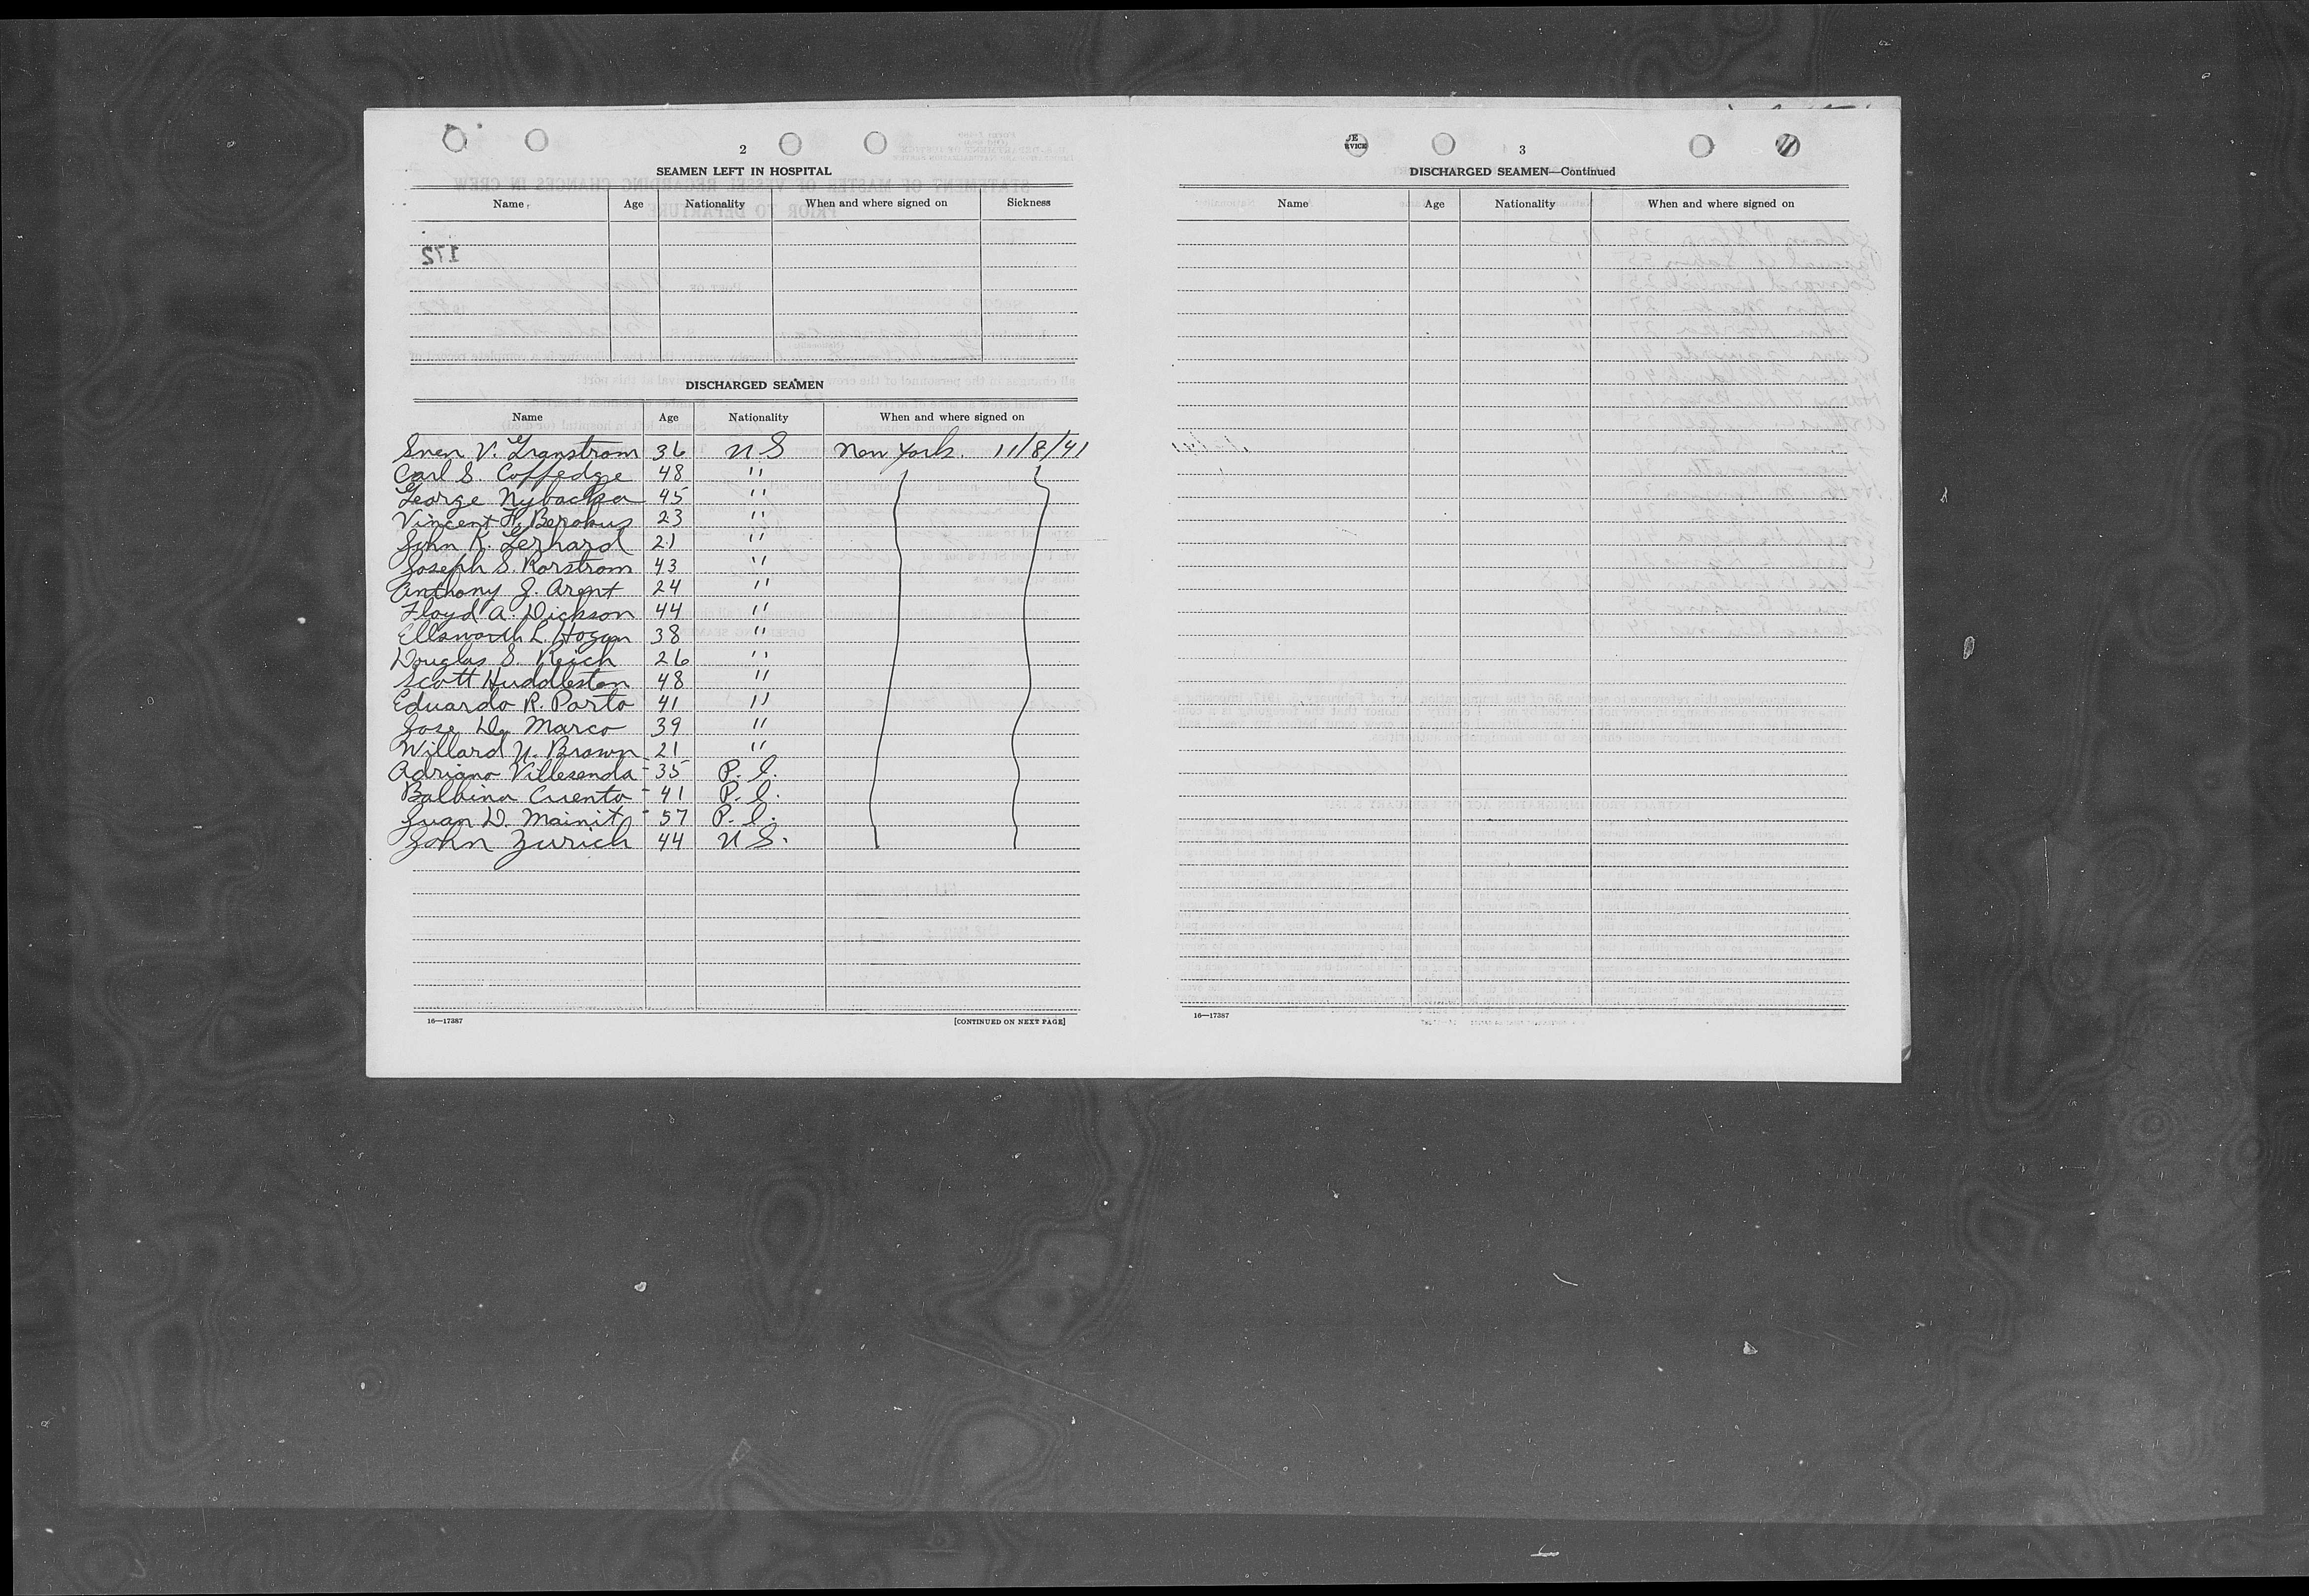 2
SEAMEN LEFT IN HOSPITAL
Name Age Nationality When and where signed on Sickness
172
DISCHARGED SEAMEN
Name Age Nationality When and where signed on
Sven V. Granstrom 36 U S New York. 11/8/41
Carl S. Coffedge 48 "
George Nybacka 45 "
Vincent H. 23 "
John K. Gerhard 21 "
Joseph S. Korstrom 43 "
Anthony J. Arent 24 "
Floyd A. Dickson 44 "
Ellsworth L. Hogan 38 "
Douglas S. Reich 26 "
Scott Huddleston 48 "
Eduardo R. Porto 41 "
Jose De Marco 39 "
Willard N. Brown 21 "
Adriano Villesenda - 35 P. I.
Balbino Cuento - 41 P. I.
Juan D. Mainit - 57 P. I.
John Zurich 44 U S.
16—17387 [CONTINUED ON NEXT PAGE]
JE
RVICE
3
DISCHARGED SEAMEN—Continued
Name Age Nationality When and where signed on
16—17387